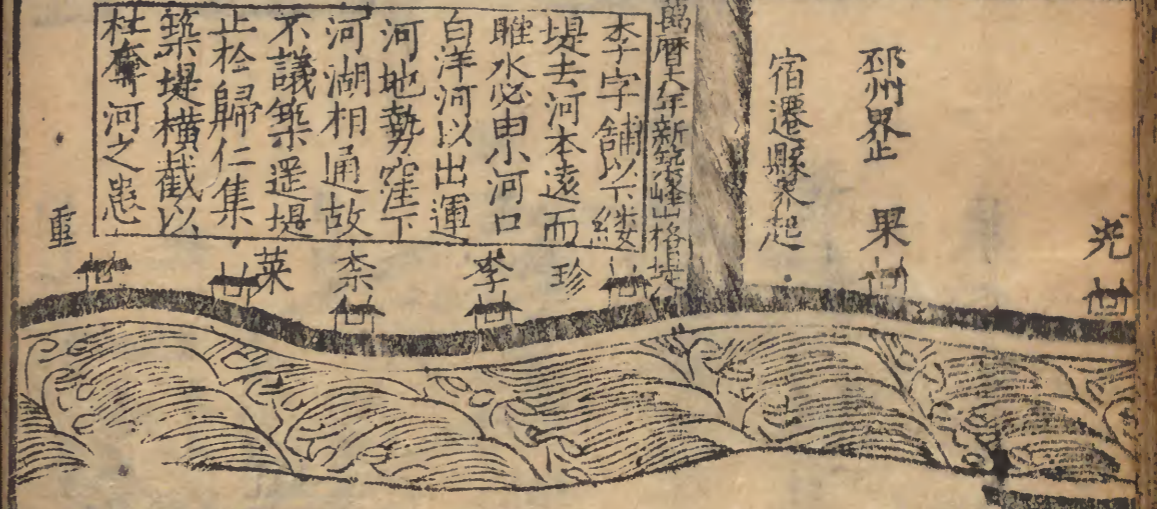 光
邳州界止
果
宿遷縣界起
萬曆六年新築峰山格堤
珍
李字舖以下縷
堤去河本遠而
睢水必由小河口
白洋河以出運
河地勢窪下
河湖相通故
不議築遥堤
止於歸仁集
築堤橫截以
杜奪河之患
李
柰
菜
重